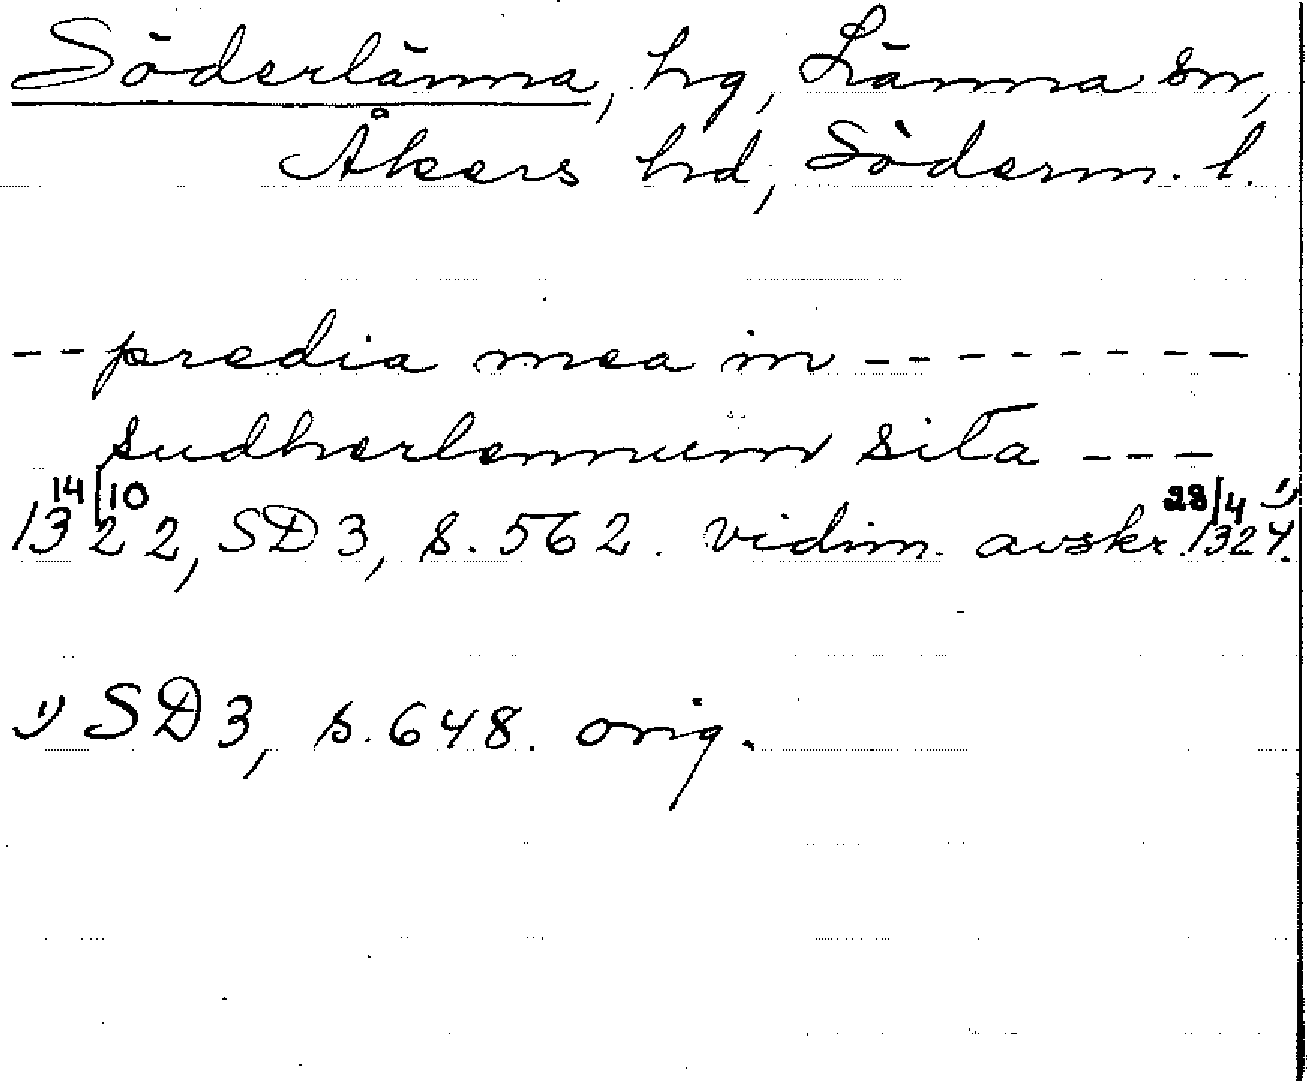 Söderlänna, hg, Länna sn,
Åkers hd, Söderm. l.
-- predia mea in --------
sudherlennum sita ---
14/10 1322, SD 3, s. 562. vidim. avskr. 28/4 1324. 1)
1) SD 3, s. 648. orig.